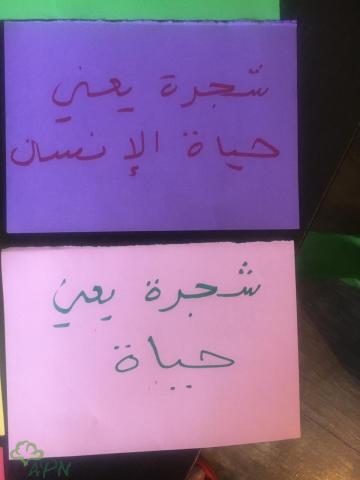 شجرة يعني
حياة الإنسان
شجرة يعني
حياة
APN